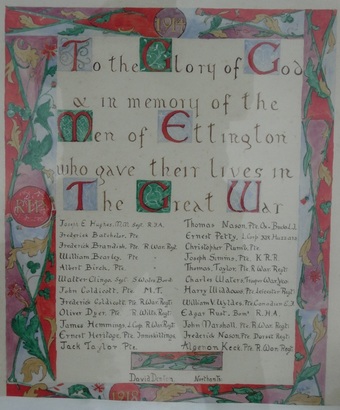 1914
To the Glory of God
& in memory of the
Men of Ettington
who gave their lives in
The Great War
Joseph E. Hayter, Sgt. R.H.A.
Frederick Batchelor, Pte.
Frederick Brandish, Pte. R. War. Regt.
William Bearley, Pte.
Albert Birch, Pte.
Walter Clinga
John Coldicott, Pte. M.T.
Frederick Coldicott, Pte. R. War. Regt.
Oliver Dyer, Pte. R. Wilts Regt.
James Hemmings, L.Cop. R. War. Regt.
Ernest Heritage, Pte. Inniskillings
Jack Taylor Pte.
Thomas Nason, Pte. Ox. & Bucks L.I.
Ernest Petty, L.Corp. Hussars
Christopher Plumb, Pte.
Joseph Simms, Pte. K.R.R.
Thomas Taylor, Pte. R. War. Regt.
Charles Waters, Trooper War. Yeo.
Harry Widdows, Pte. Leicester Regt.
William V. Wyldes, Pte. Canadian
Edgar Prat, R.H.A.
John Marshall, Pte. R. War. Regt.
Frederick Nason, Pte. Dorset Regt.
Algernon Keck, Pte. R. War. Regt.
David
1918